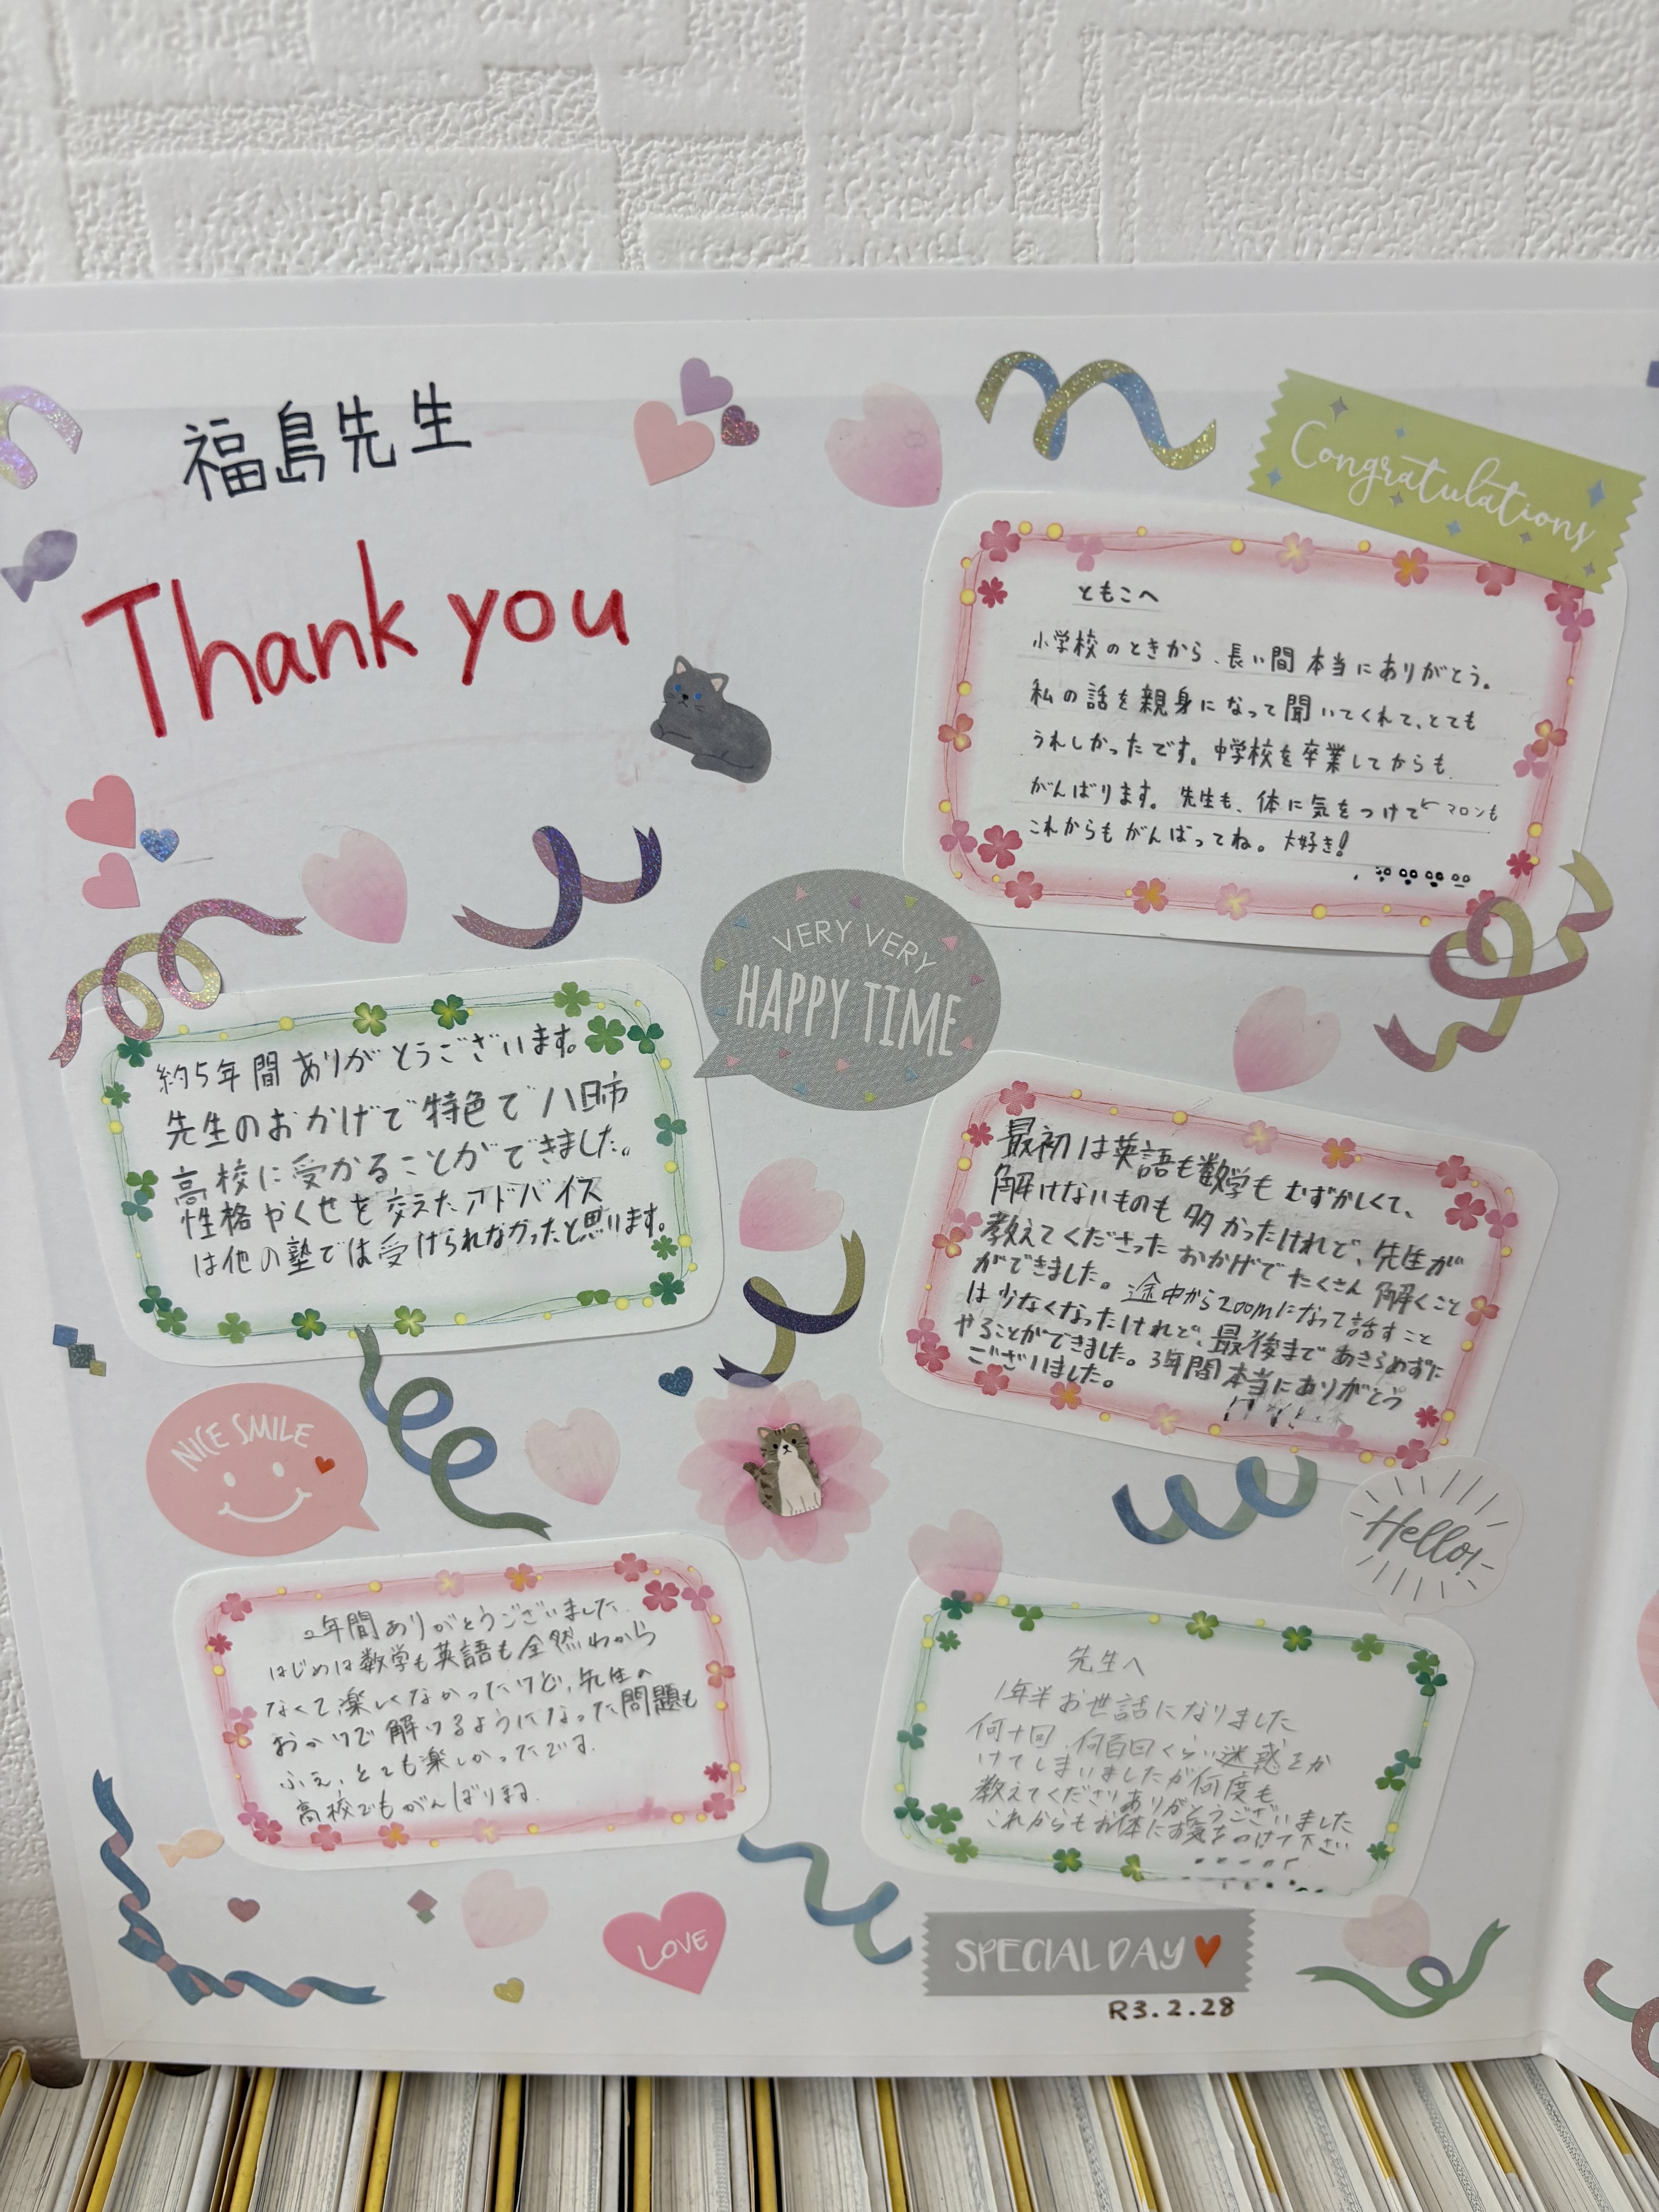 福島先生
Thank you
Congratulations
ともこへ
小学校のときから、長い間本当にありがとう。
私の話を親身になって聞いてくれて、とても
うれしかったです。中学校を卒業してからも
がんばります。先生も、体に気をつけて←マロンも
これからもがんばってね。大好き!
VERY VERY
HAPPY TIME
約5年間ありがとうございます。
先生のおかげで特色で八日市
高校に受かることができました。
性格やくせを交えたアドバイス
は他の塾では受けられなかったと思います。
最初は英語も数学もむずかしくて、
解けないものも多かったけれど、先生が
教えてくださったおかげでたくさん解くこと
ができました。途中からzoomになって話すこと
は少なくなったけれど、最後まであきらめずに
やることができました。3年間本当にありがとう
ございました。
NICE SMILE
Hello!
2年間ありがとうございました
はじめは数学も英語も全然わから
なくて楽しくなかったけど、先生の
おかげで解けるようになった問題も
ふえ、とても楽しかったです。
高校でもがんばります。
先生へ
1年半お世話になりました
何十回、何百回くらい迷惑をか
けてしまいましたが何度も
教えてくださりありがとうございました
これからもお体にお気をつけて下さい
LOVE
SPECIAL DAY
R3.2.28